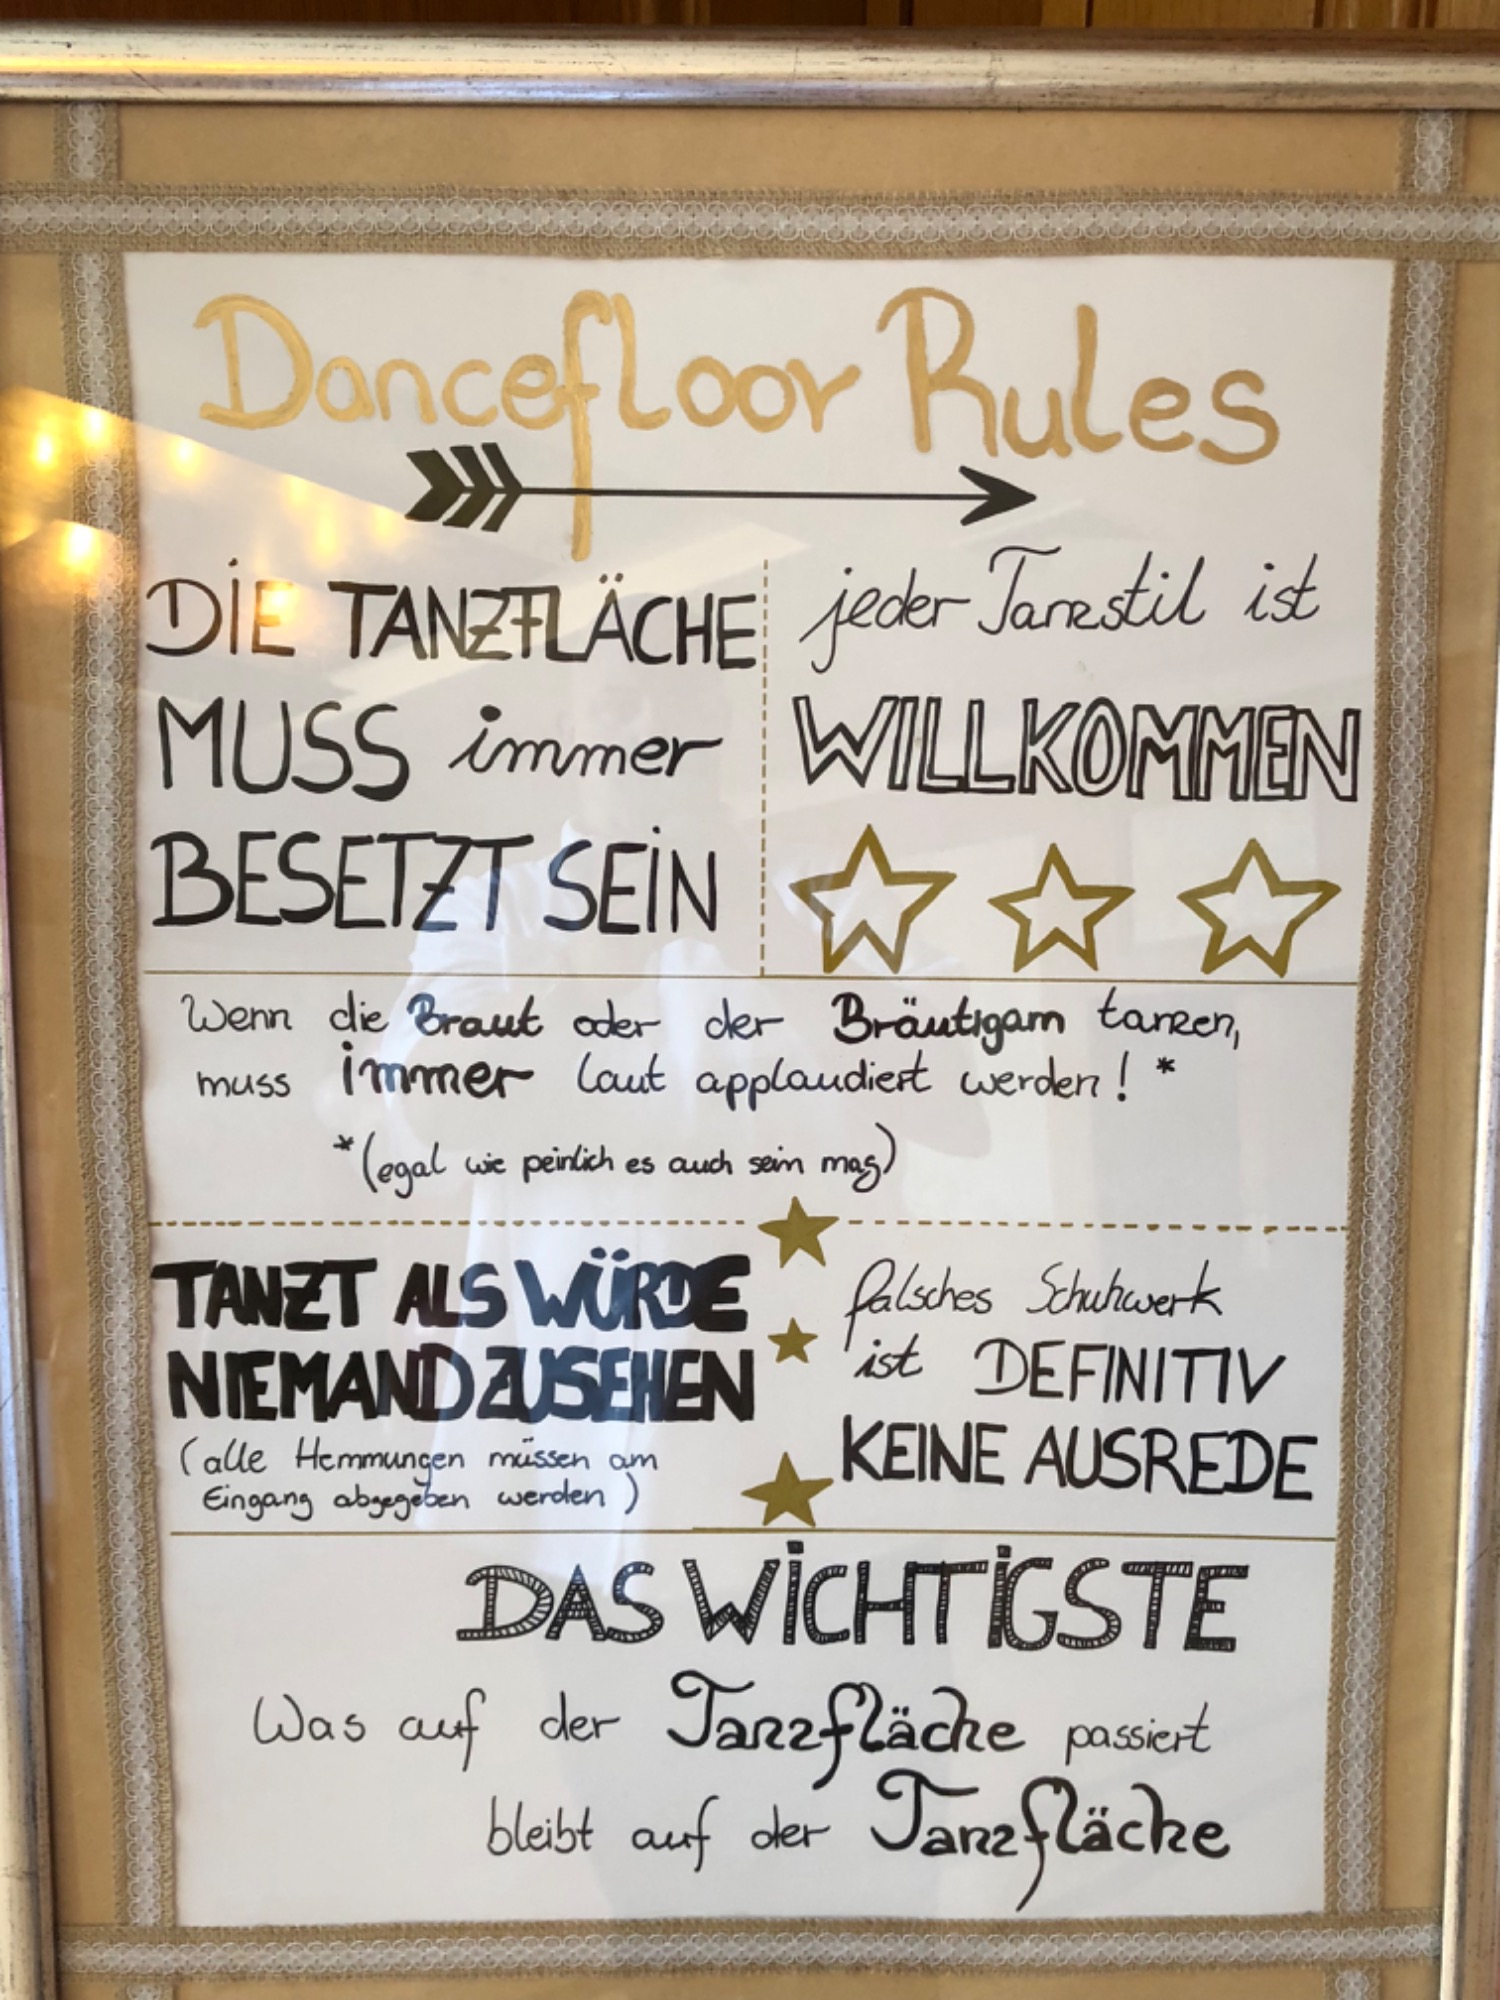 Dancefloor Rules
DIE TANZFLÄCHE
MUSS immer
BESETZT SEIN
jeder Tanzstil ist
WILLKOMMEN
Wenn die Braut oder der Bräutigam tanzen,
muss immer laut applaudiert werden! *
*(egal wie peinlich es auch sein mag)
TANZT ALS WÜRDE
NIEMAND ZUSEHEN
(alle Hemmungen müssen am
Eingang abgegeben werden)
falsches Schuhwerk
ist DEFINITIV
KEINE AUSREDE
DAS WICHTIGSTE
Was auf der Tanzfläche passiert
bleibt auf der Tanzfläche